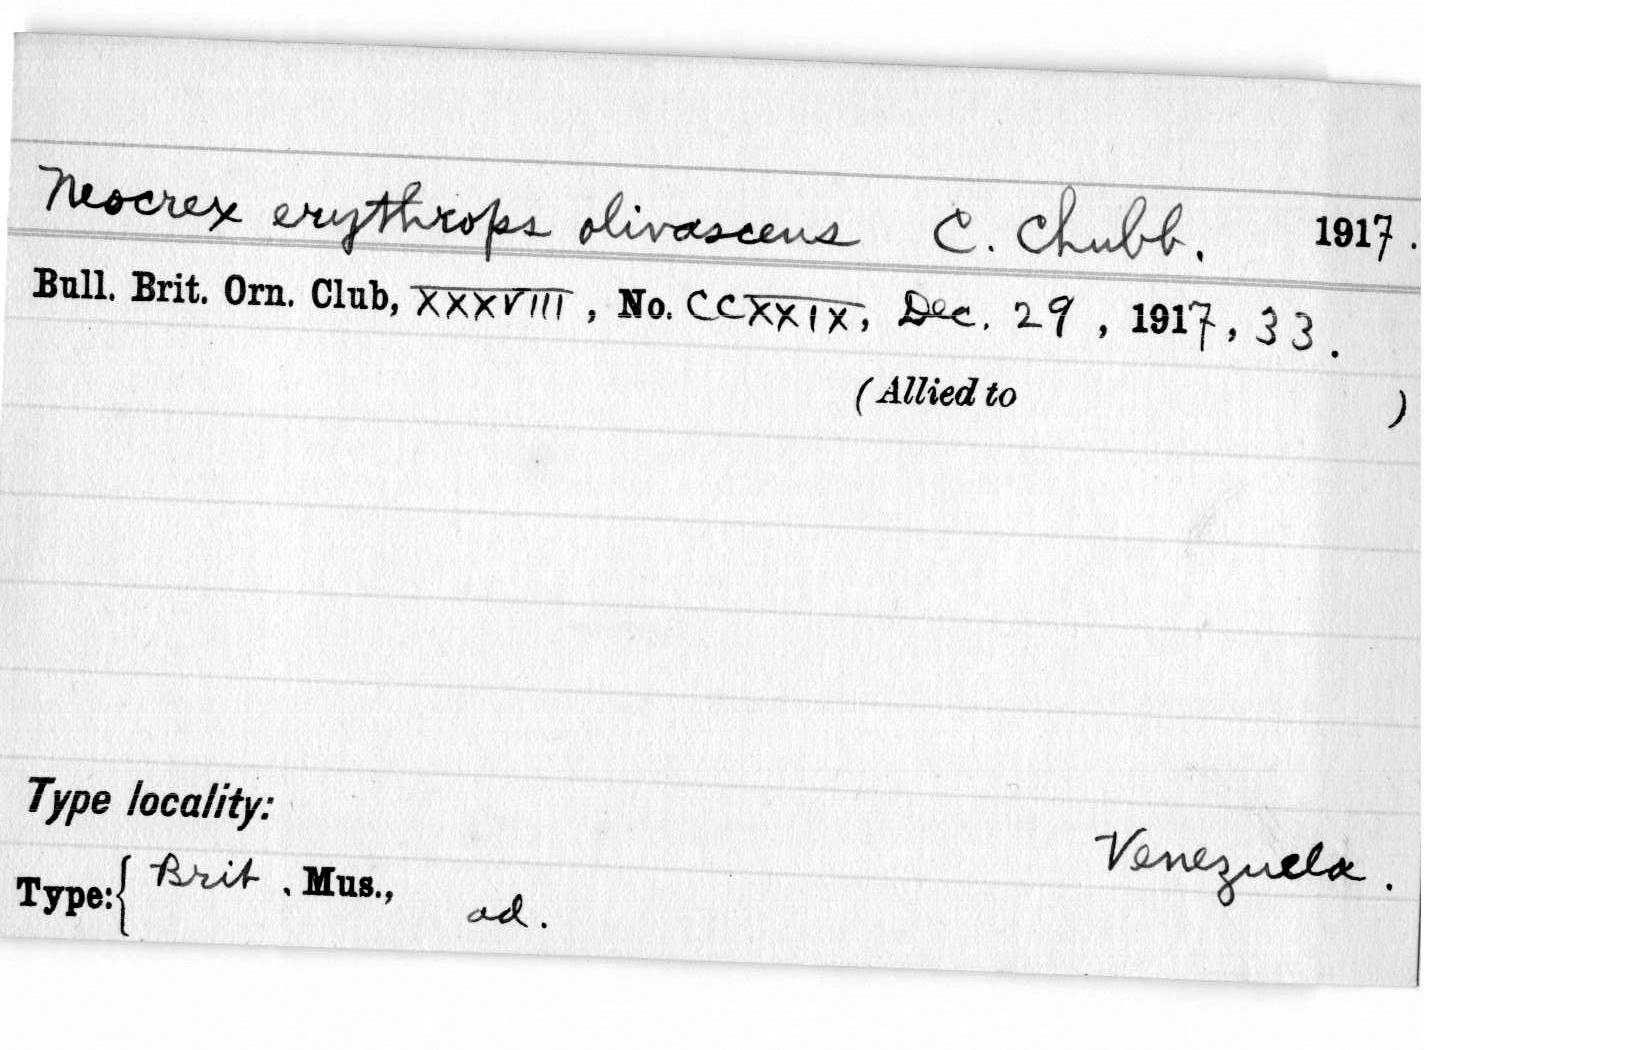 Neocrex erythrops olivascens C. Chubb. 1917.
Bull. Brit. Orn. Club, XXXVIII, No. CCXXIX, Dec. 29, 1917, 33.
(Allied to )
Type locality:
Venezuela.
Type: { Brit. Mus., ad.